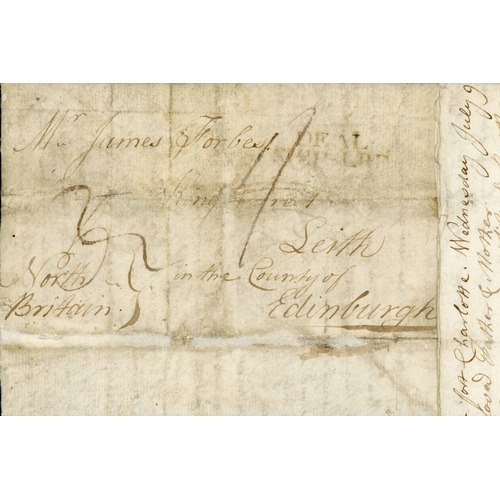 Mr James Forbes
DEAL
SHIP LRE
King Street
Leith
North in the County of
Britain. Edinburgh
Fort Charlotte. Wednesday July 9
Father & Mother